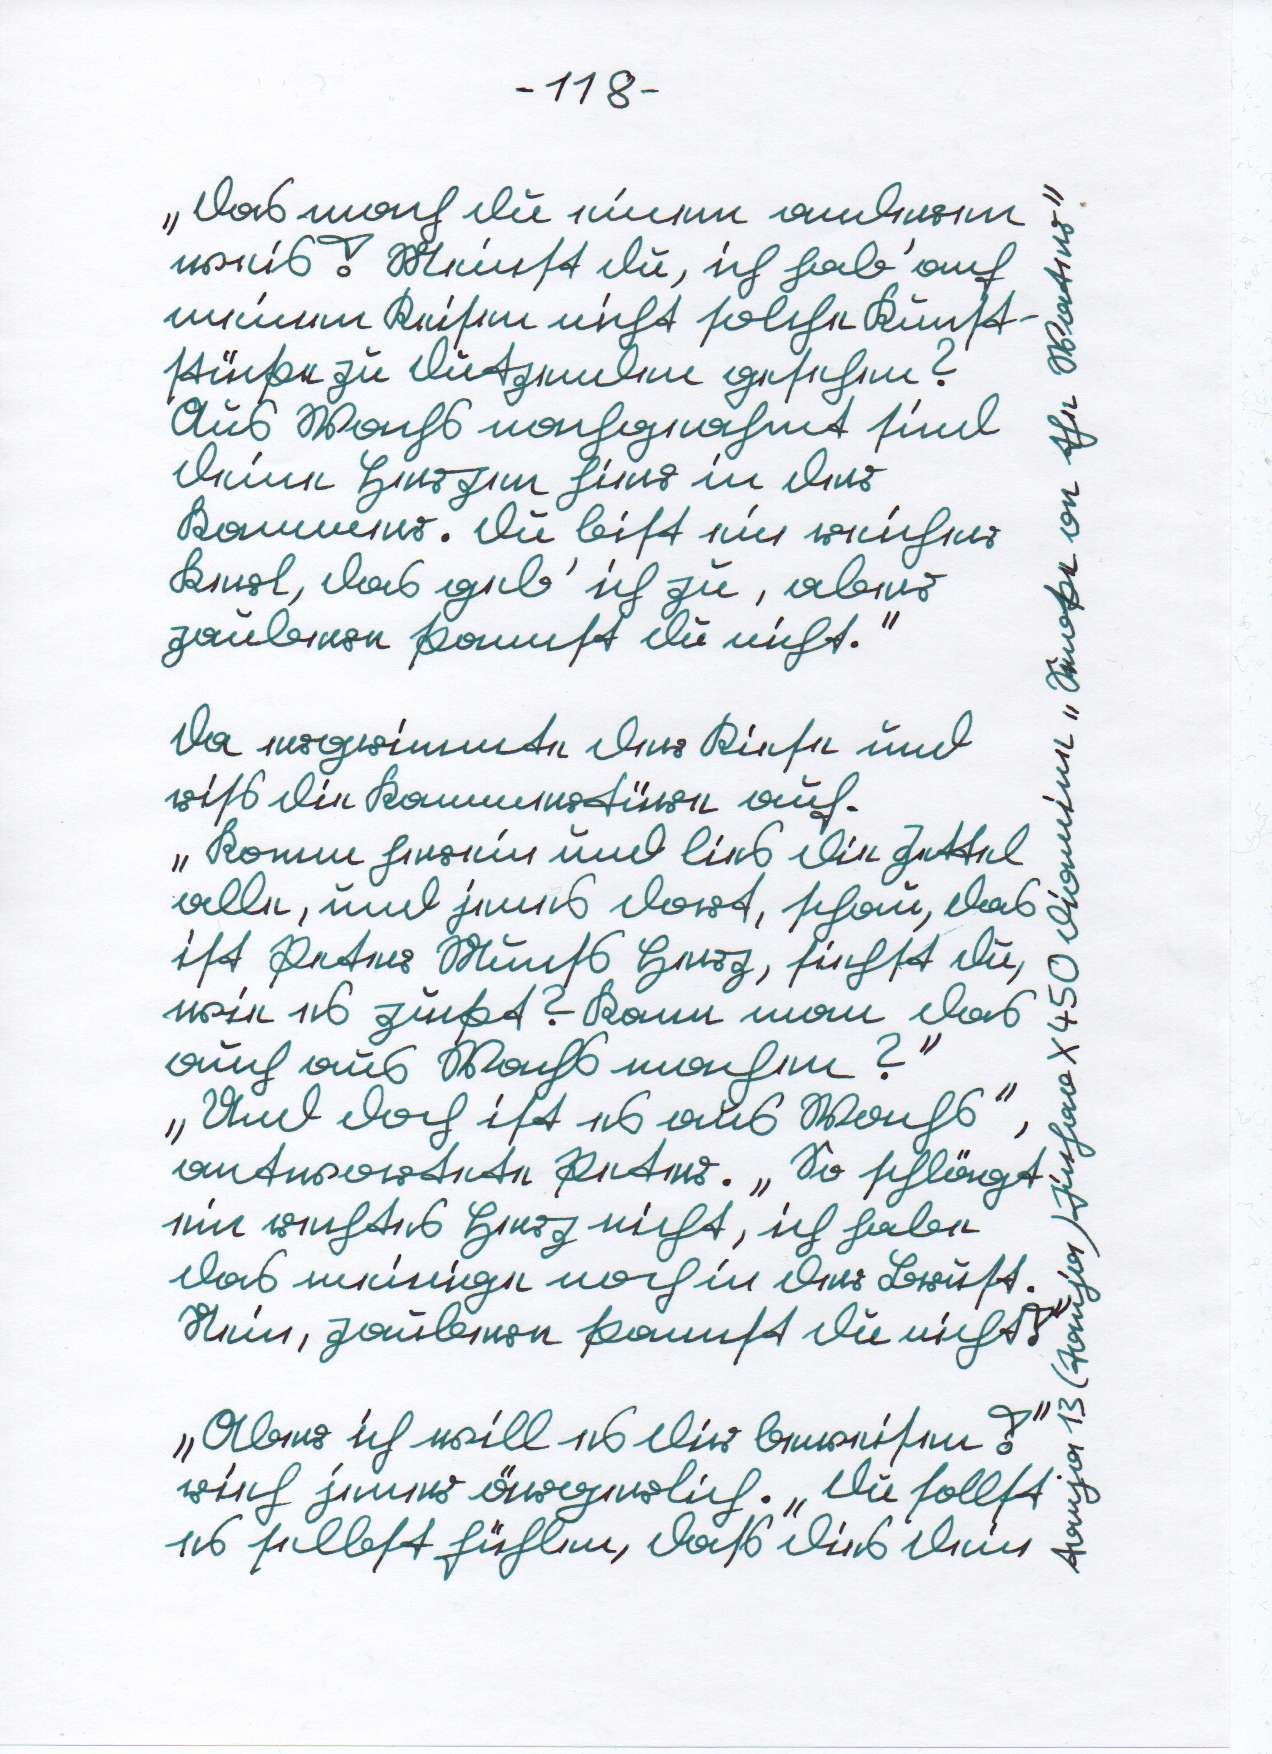 -118-
„Das mach du einem anderen
weis! Meinst du, ich hab' auf
meinen Reisen nicht solche Kunst-
stücke zu Dutzenden gesehen?
Aus Wachs nachgeahmt sind
deine Herzen hier in der
Kammer. Du bist ein reicher
Kerl, das geb' ich zu, aber
zaubern kannst du nicht."
Da ergrimmte der Riese und
riß die Kammertüre auf.
„Komm herein und lies die Zettel
alle, und jenes dort, schau, das
ist Peter Munks Herz, siehst du,
wie es zuckt? Kann man das
auch aus Wachs machen?"
„Und doch ist es aus Wachs",
antwortete Peter. „So schlägt
ein rechtes Herz nicht, ich habe
das meinige noch in der Brust.
Nein, zaubern kannst du nicht!"
„Aber ich will es dir beweisen!"
rief jener ärgerlich. „Du sollst
es selbst fühlen, daß dies dein
X 450 Diamine „ on the Water"